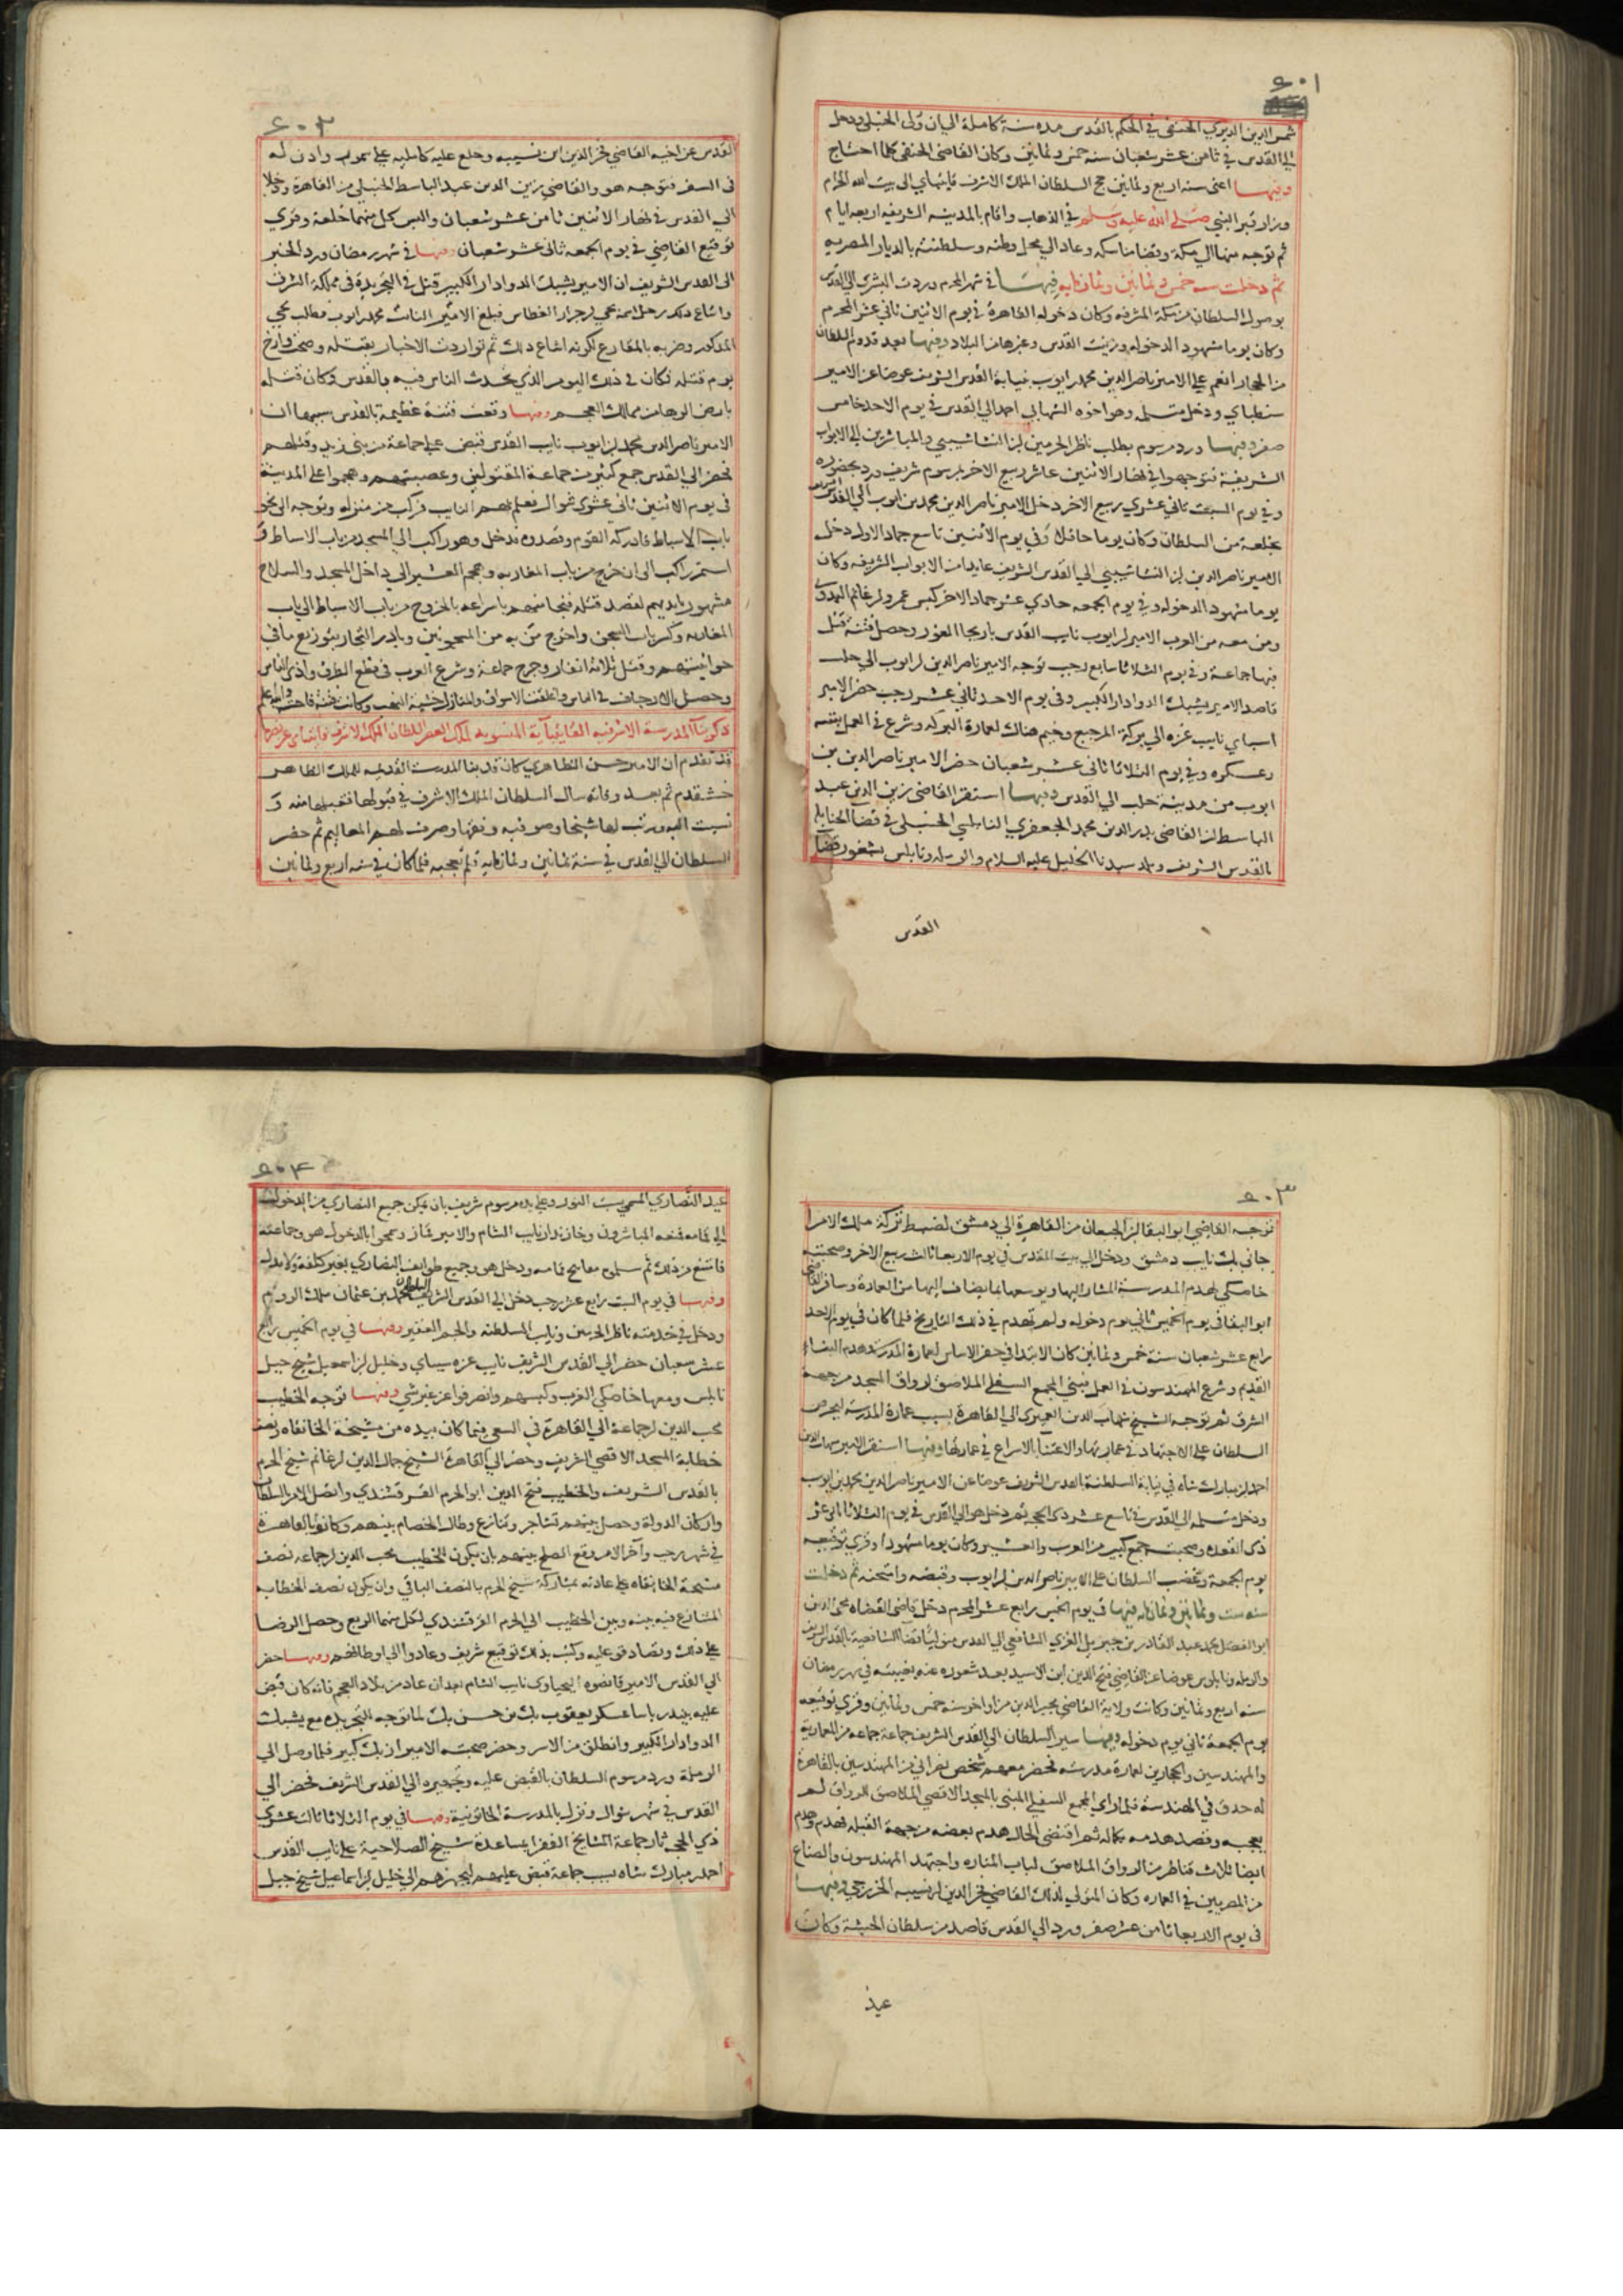 ٤٠١
شمس الدين الديري الحنفي في الحكم بالقدس مده سنة كاملة الى ان ولى الحنبلي ودخل
الى القدس في ثامن عشر شعبان سنه خمس وثمانين وكان القاضي الحنفي كلما احتاج
وفيها اعنى سنه اربع وثمانين حج السلطان الملك الاشرف قايتباي الى بيت الله الحرام
وزار قبر النبي صلى الله عليه وسلم في الذهاب واقام بالمدينه الشريفه اربعه ايام
ثم توجه منها الي مكة وقضا مناسكه وعاد الي محل وطنه وسلطنته بالديار المصريه
ثم دخلت سنه خمس وثمانين وثمانمايه فيها في شهر المحرم وردت البشرى الى القدس
بوصول السلطان من مكة المشرفه وكان دخوله القاهرة في يوم الاثنين ثاني عشر المحرم
وكان يوما مشهودا لدخوله وزينت القدس وغيرها من البلاد وفيها بعد قدوم السلطان
من الحجاز انعم على الامير ناصر الدين محمد بن ايوب بنيابة القدس الشريف عوضا عن الامير
سنطباي ودخل متسلمه وهو اخوه الشهابي احمد الي القدس في يوم الاحد خامس
صفر وفيها ورد مرسوم بطلب ناظر الحرمين ابن النشاشيبي والمباشرين الى الابواب
الشريفة فتوجهوا في نهار الاثنين عاشر ربيع الاخر بمرسوم شريف ورد بحضوره
وفي يوم السبت ثاني عشري ربيع الاخر دخل الامير ناصر الدين محمد بن ايوب الى القدس
بخلعة من السلطان وكان يوما حافلا وفي يوم الاثنين تاسع جماد الاول دخل
الامير ناصر الدين ابن النشاشيبي الي القدس الشريف عايدا من الابواب الشريفه وكان
يوما مشهودا لدخوله وفي يوم الجمعه حادي عشر جماد الاخر كبس عمرو بن غانم البدوي
ومن معه من العرب الامير بن ايوب نايب القدس باريحا الغور وحصل فتنة قتل
فيها جماعة وفي يوم الثلاثا سابع رجب توجه الامير ناصر الدين بن ايوب الي حلب
قاصد الامير يشبك الدوادار الكبير وفي يوم الاحد ثاني عشر رجب حضر الامير
سيباي نايب غزه الي بركة المرجيع وخيم هناك لعمارة البركه وشرع في العمل بنفسه
وعسكره وفي يوم الثلاثا ثاني عشر شعبان حضر الامير ناصر الدين بن
ايوب من مدينة حلب الي القدس وفيها استقر القاضي زين الدين عبد
الباسط ابن القاضي بدر الدين محمد الجعفري النابلسي الحنبلي في قضا الحنابله
بالقدس الشريف وبلد سيدنا الخليل عليه السلام والرمله ونابلس بشغور قضا
القدس
٤٠٢
القدس عن اخيه القاضي فخر الدين ابن نسيبه وخلع عليه كامليه واذن له
في السفر فتوجه هو والقاضي زين الدين عبد الباسط الحنبلي من القاهرة ودخلا
الي القدس في نهار الاثنين ثامن عشر شعبان والبس كل منهما خلعة وقري
توقيع القاضي في يوم الجمعه ثاني عشر شعبان وفيها في شهر رمضان ورد الخبر
الى القدس الشريف ان الامير يشبك الدوادار الكبير قتل في التجريدة في مملكة الشرق
واشاع ذلك رجل اسمه فبلغ الامير النايب محمد بن ايوب فطلب
المذكور وضربه بالمقارع لكونه اشاع ذلك ثم تواردت الاخبار بقتله وصح وارخ
يوم قتله فكان في ذلك اليوم الذي تحدث الناس فيه بالقدس وكان قتله
بارض الرها من ممالك العجم وفيها وقعت فتنة عظيمه بالقدس سببها ان
الامير ناصر الدين محمد بن ايوب نايب القدس قبض على جماعة من بني زيد وقتلهم
فحضر الي القدس جمع كثير من جماعة المقتولين وعصبتهم وهجموا على المدينة
في يوم الاثنين ثاني عشري شوال فعلم بهم النايب فركب من منزله وتوجه الى نحو
باب الاسباط فادركه القوم وقصدوه فدخل وهو راكب الي المسجد من باب الاسباط و
استمر راكبا الى ان خرج من باب المغاربه وهجم العشير الي داخل المسجد والسلاح
مشهور بايديهم لقصد قتله فنجا منهم باسراعه بالخروج من باب الاسباط الي باب
المغاربه وكسر باب السجن واخرج من به من المسجونين وبادر التجار بتوزيع ما في
حوانيتهم وقتل ثلاثة انفار وجرح جماعة وشرع العرب في قطع الطرق واذى الناس
وحصل الارجاف في الناس واغلقت الاسواق والمنازل خشية النهب وكانت فتنة فاحشة والله اعلم
ذكر بنا المدرسة الاشرفيه القايتبائية المنسوبه لملك العصر السلطان الملك الاشرف قايتباي عز نصره
قد تقدم ان الامير حسن الظاهري كان قد بنا المدرسة القديمه للملك الظاهر
خشقدم ثم بعد وفاته سال السلطان الملك الاشرف في قبولها فقبلها منه و
نسبت اليه ورتب لها شيخا وصوفيه وفقها وصرف لهم المعاليم ثم حضر
السلطان الى القدس في سنة ثمانين وثمانمايه فلم تعجبه فلما كان في سنه اربع وثمانين
٤٠٣
توجه القاضي ابو البقا ابن الجيعان من القاهرة الي دمشق لضبط تركة ملك الامرا
جاني بك نايب دمشق ودخل الي بيت المقدس في يوم الاربعا ثالث ربيع الاخر وصحبته
خاصكي لهدم المدرسة المشار اليها وتوسعها بما يضاف اليها من العمارة وسافر القاضي
ابو البقا في يوم الخميس ثاني يوم دخوله ولم تهدم في ذلك التاريخ فلما كان في يوم الاحد
رابع عشر شعبان سنة خمس وثمانين كان الابتدا في حفر الاساس لعمارة المدرسة وهدم البناء
القديم وشرع المهندسون في العمل فبني المجمع السفلي الملاصق لرواق المسجد من جهة
الشرق ثم توجه الشيخ شهاب الدين العميري الي القاهرة بسبب عمارة المدرسه ليحرض
السلطان على الاجتهاد في عمارتها والاعتنا بالاسراع في عمارتها وفيها استقر الامير شهاب الدين
احمد بن مبارك شاه في نيابة السلطنة بالقدس الشريف عوضا عن الامير ناصر الدين محمد بن ايوب
ودخل متسلمه الى القدس في تاسع عشر ذي الحجة ثم دخل هو الي القدس في يوم الثلاثا
ذي القعدة وصحبته جمع كبير من العرب والعشير وكان يوما مشهودا وقري توقيعه
يوم الجمعة وغضب السلطان على الامير ناصر الدين بن ايوب وقبضه وامتحنه ثم دخلت
سنه ست وثمانين وثمانمايه فيها في يوم الخميس رابع عشر المحرم دخل قاضي القضاه محيي الدين
ابو الفضل محمد عبد القادر بن جبريل الغزي الشافعي الي القدس متوليا قضا الشافعية بالقدس الشريف
والرمله ونابلوس عوضا عن القاضي فتح الدين ابن الاسيد بعد شغوره عنه بغيبته في شهر رمضان
سنه اربع وثمانين وكانت ولاية القاضي محيي الدين من اواخر سنه خمس وثمانين وقري توقيعه
يوم الجمعة ثاني يوم دخوله وفيها سير السلطان الي القدس الشريف جماعة من المعمارية
والمهندسين والحجارين لعمارة مدرسته فحضر معهم شخص نصراني من المهندسين بالقاهرة
له حدق في الهندسة فلما راى المجمع السفلي المبني بالمسجد الاقصي الملاصق للرواق لم
يعجبه وقصد هدمه بكماله ثم اقتضى الحال هدم بعضه من جهة القبلة فهدم وهدم
ايضا ثلاث قناطر من الرواق الملاصق لباب المناره واجتهد المهندسون والصناع
من المصريين في العماره وكان المتولي لذلك القاضي فخر الدين بن نسيبه الخزرجي وفيها
في يوم الاربعا ثامن عشر صفر ورد الي القدس قاصد من سلطان الحبشة وكان
عيد
٤٠٤
عيد النصاري المسمى سبت النور وعلى يده مرسوم شريف بان يمكن جميع النصاري من الدخول
الى قمامه فمنعه المباشرون وخازندار نايب الشام والامير بالدخول هو وجماعته
فامتنع من ذلك ثم سلموه مفاتيح قمامه ودخل هو وجميع طوايف النصاري بغير كلفة ولا بذل له
وفيها في يوم السبت رابع عشر رجب دخل الى القدس الشريف السلطان محمد بن عثمان ملك الروم
ودخل في خدمته ناظر الحرمين ونايب السلطنه والجم الغفير وفيها في يوم الخميس رابع
عشر شعبان حضر الي القدس الشريف نايب غزه سيباي وخليل بن اسمعيل شيخ جبل
نابلس ومعهما خاصكي وكبسهم وانصرفوا عن غير شي وفيها توجه الخطيب
محب الدين بن جماعة الي القاهرة في السعي فيما كان بيده من مشيخة الخانقاه ونصف
خطابة المسجد الاقصي الشريف وحضر الي القاهرة الشيخ جمال الدين بن غانم شيخ الحرم
بالقدس الشريف والخطيب فتح الدين ابو الحرم القرقشندي واتصل الامر بالسلطان
واركان الدولة وحصل بينهم تشاجر وتنازع وطال الخصام بينهم وكانوا بالقاهرة
في شهر رجب وآخر الامر وقع الصلح بينهم بان يكون للخطيب محب الدين بن جماعه نصف
مشيخة الخانقاه على عادته بمشاركة شيخ الحرم بالنصف الباقي وان يكون نصف الخطابه
المتنازع فيه بينه وبين الخطيب ابي الحرم القرقشندي لكل منهما الربع وحصل الرضا
على ذلك وتصادقوا عليه وكتب بذلك توقيع شريف وعادوا الي اوطانهم وفيها حضر
الي القدس الامير قانصوه اليحياوي نايب الشام بعد ان عاد من بلاد العجم فانه كان قبض
عليه بندر باسا عسكر يعقوب بك بن حسن بك لما توجه التجريده مع يشبك
الدوادار الكبير وانطلق من الاسر وحضر صحبته الامير ازبك كبير فلما وصل الي
الرملة ورد مرسوم السلطان بالقبض عليه وتجهيزه الي القدس الشريف فحضر الي
القدس في شهر شوال ونزل بالمدرسة الخاتونية وفيها في يوم الثلاثا ثالث عشري
ذي الحجه ثار جماعة المشايخ الفقرا بمساعدة شيخ الصلاحية على نايب القدس
احمد بن مبارك شاه بسبب جماعة قبض عليهم ليجهزهم الي خليل بن اسماعيل شيخ جبل